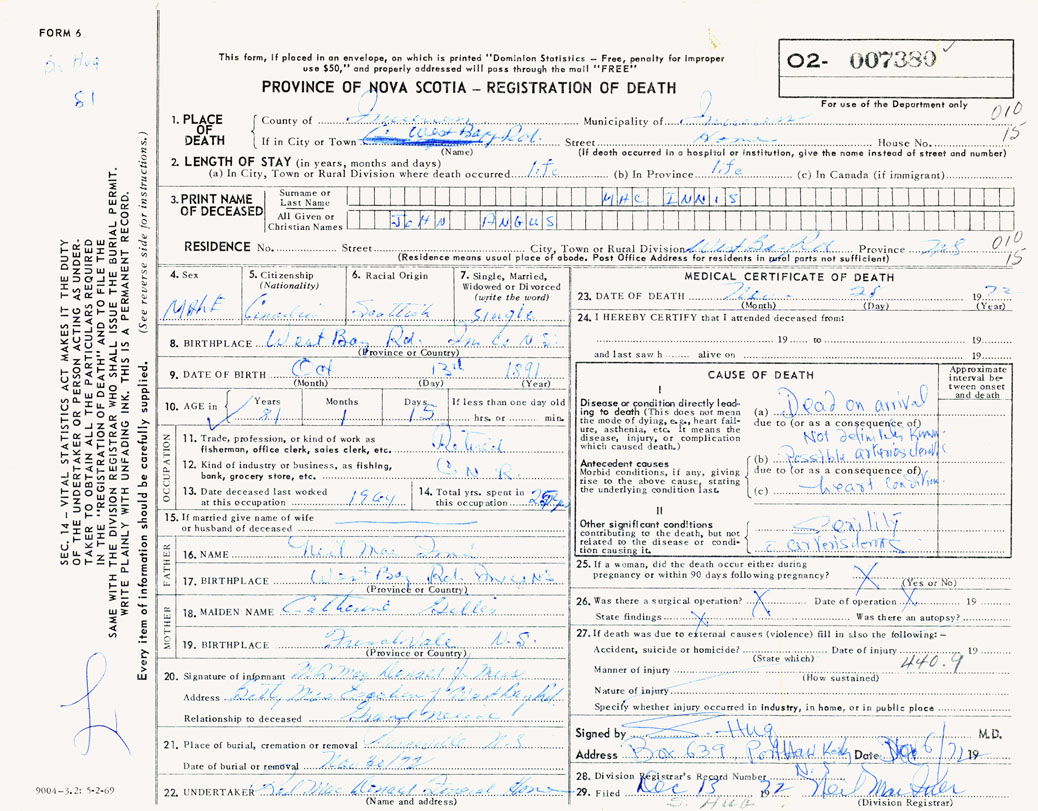 FORM 6
Dr Hug
81
This form, if placed in an envelope, on which is printed "Dominion Statistics – Free, penalty for improper
use $50," and properly addressed will pass through the mail "FREE"
PROVINCE OF NOVA SCOTIA – REGISTRATION OF DEATH
O2- 007380
For use of the Department only
010
15
1. PLACE OF DEATH
County of Inverness Municipality of Inverness
If in City or Town West Bay Rd. Street Home House No.
(Name) (If death occurred in a hospital or institution, give the name instead of street and number)
2. LENGTH OF STAY (in years, months and days)
(a) In City, Town or Rural Division where death occurred life (b) In Province life (c) In Canada (if immigrant)
3. PRINT NAME OF DECEASED
Surname or Last Name MAC INNIS
All Given or Christian Names JOHN ANGUS
RESIDENCE No. Street City, Town or Rural Division West Bay Rd Province N.S
(Residence means usual place of abode. Post Office Address for residents in rural parts not sufficient)
010
15
4. Sex
MALE
5. Citizenship (Nationality)
Canadian
6. Racial Origin
Scottish
7. Single, Married, Widowed or Divorced (write the word)
Single
8. BIRTHPLACE West Bay Rd. Inv Co N.S.
(Province or Country)
9. DATE OF BIRTH Oct 13th 1891
(Month) (Day) (Year)
10. AGE in Years 81 Months 1 Days 15 If less than one day old hrs. or min.
OCCUPATION
11. Trade, profession, or kind of work as fisherman, office clerk, sales clerk, etc. Retired
12. Kind of industry or business, as fishing, bank, grocery store, etc. C N R
13. Date deceased last worked at this occupation 1964
14. Total yrs. spent in this occupation
15. If married give name of wife or husband of deceased
FATHER
16. NAME Neil Mac Innis
17. BIRTHPLACE West Bay Rd.
(Province or Country)
MOTHER
18. MAIDEN NAME Catherine Gillis
19. BIRTHPLACE French Vale N.S.
(Province or Country)
20. Signature of informant
Address West Bay Rd.
Relationship to deceased
21. Place of burial, cremation or removal N.S
Date of burial or removal Nov 30/72
22. UNDERTAKER Mac Donald Funeral Home
(Name and address)
MEDICAL CERTIFICATE OF DEATH
23. DATE OF DEATH Nov 28 1972
(Month) (Day) (Year)
24. I HEREBY CERTIFY that I attended deceased from:
19 to 19
and last saw h alive on 19
CAUSE OF DEATH
Approximate interval between onset and death
I
Disease or condition directly leading to death (This does not mean the mode of dying, e.g., heart failure, asthenia, etc. It means the disease, injury, or complication which caused death.)
(a) Dead on arrival
due to (or as a consequence of)
Not definitely known
Antecedent causes
Morbid conditions, if any, giving rise to the above cause, stating the underlying condition last.
(b) Possible
due to (or as a consequence of)
(c) heart condition
II
Other significant conditions contributing to the death, but not related to the disease or condition causing it.
Senility
25. If a woman, did the death occur either during pregnancy or within 90 days following pregnancy? X
(Yes or No)
26. Was there a surgical operation? X Date of operation X 19
State findings X Was there an autopsy?
27. If death was due to external causes (violence) fill in also the following: –
Accident, suicide or homicide? Date of injury 19
(State which)
440.9
Manner of injury
(How sustained)
Nature of injury
Specify whether injury occurred in industry, in home, or in public place
Signed by S. Hug M.D.
Address Box 639, Port Hawkesbury Date Dec 6/72 19
N.S.
28. Division Registrar's Record Number
29. Filed Dec 13 1972 Neil
S. Hug (Division Registrar)
SEC. 14 – VITAL STATISTICS ACT MAKES IT THE DUTY
OF THE UNDERTAKER OR PERSON ACTING AS UNDER-
TAKER TO OBTAIN ALL THE PARTICULARS REQUIRED
IN THE "REGISTRATION OF DEATH" AND TO FILE THE
SAME WITH THE DIVISION REGISTRAR WHO SHALL ISSUE THE BURIAL PERMIT.
WRITE PLAINLY WITH UNFADING INK. THIS IS A PERMANENT RECORD.
Every item of information should be carefully supplied. (See reverse side for instructions.)
9004-3.2: 5-2-69